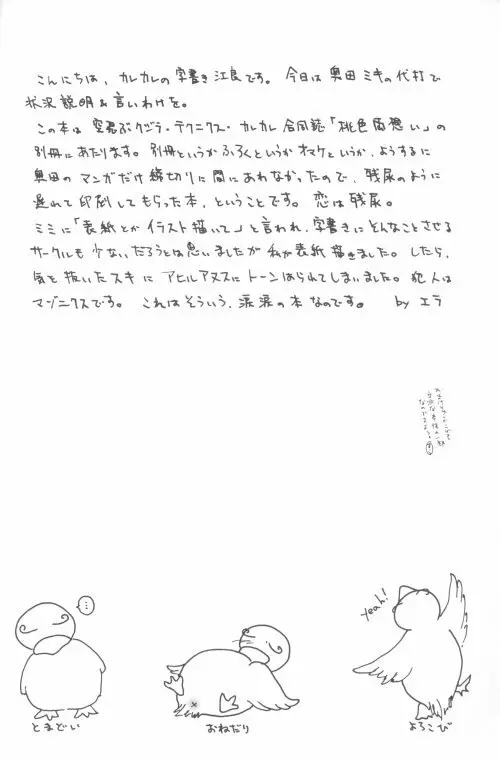 こんにちは、カレカレの字書き江良です。今日は奥田ミキの代打で
状況説明&言いわけを。
この本は空飛ぶクジラ・テクニクス・カレカレ合同誌「桃色片想い」の
別冊にあたります。別冊というかふろくというかオマケというか、ようするに
奥田のマンガだけ締切りに間にあわなかったので、残尿のように
遅れて印刷してもらった本、ということです。恋は残尿。
ミミに「表紙とかイラスト描いて」と言われ、字書きにどんなことさせる
サークルも少ないだろうとは思いましたが私が表紙描きました。したら、
気を抜いたスキにアヒルアヌスにトーンはられてしまいました。犯人は
マゾニクスです。これはそういう、涙涙の本なのです。 by エラ
…
とまどい
おねだり
yeah!
よろこび